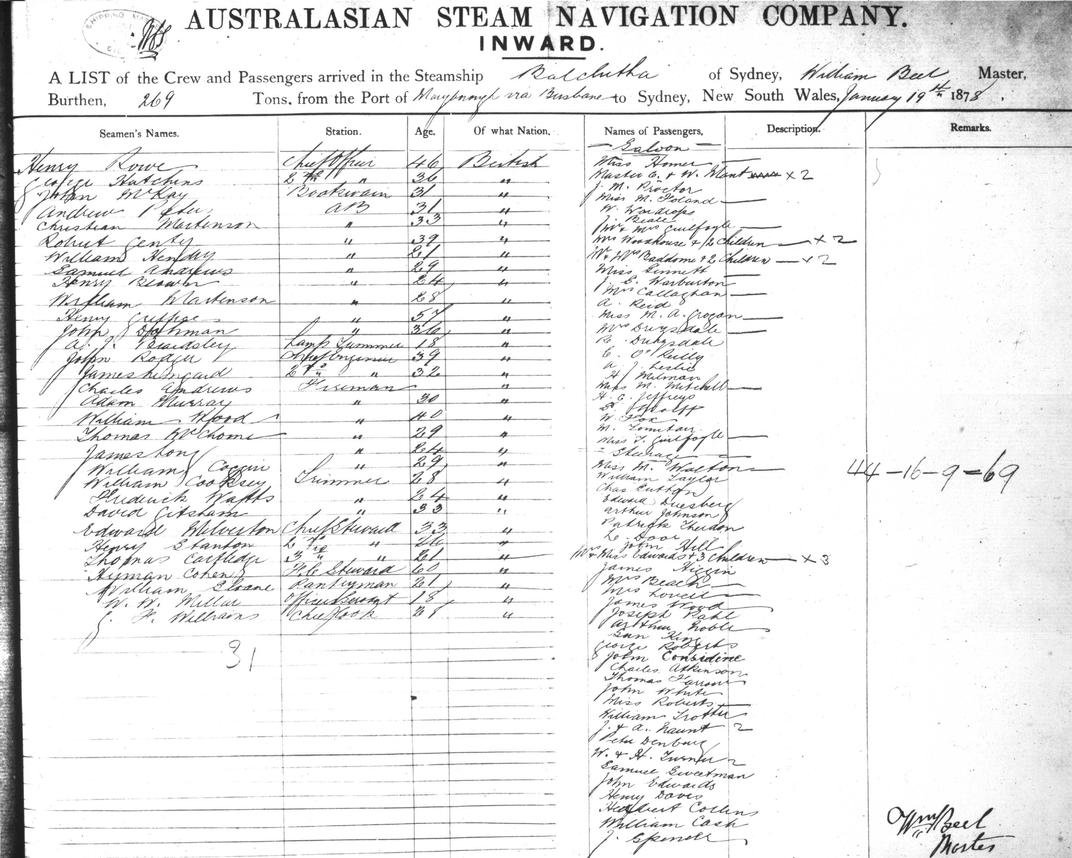 AUSTRALASIAN STEAM NAVIGATION COMPANY.
INWARD.
A LIST of the Crew and Passengers arrived in the Steamship Balclutha of Sydney, William Beel Master,
Burthen, 269 Tons, from the Port of via Brisbane to Sydney, New South Wales, January 19th 1878.
Seamen's Names. Station. Age. Of what Nation. Names of Passengers. Description. Remarks.
Saloon
Henry Rowe Chief Officer 46 British
George Hutchins 2nd " 36 "
John McKay 31 "
Andrew Peter AB 31 "
Christian Martenson " 33 "
Robert Genty " 39 "
William Hendy " 21 "
Samuel Andrews " 29 "
Henry Blower " 24 "
William Martenson " 28 "
Henry " 57 "
John " 36 "
A. J. Beardsley Lamp Trimmer 18 "
John Rodger Chief Engineer 39 "
James 2nd " 32 "
Charles Andrews Fireman "
Adam Murray " 30 "
William Wood " 40 "
Thomas " 29 "
James Long " 24 "
William " 29 "
William Cooksey Trimmer 28 "
Frederick Watts " 24 "
David Gitsham " 33 "
Edward Milverton Chief Steward 33 "
Henry Stanton 2nd " 26 "
Thomas Cartledge 3rd " 21 "
Hyman Cohen F.C. Steward 60 "
William Sloane Pantryman 21 "
W. W. Millar Officers Servant 18 "
J. F. Williams Chief Cook 38 "
31
Miss Homer
Master E. & W. x 2
J. M. Proctor
Miss M. Foland
W. Wardrops
J. Beale
Mr & Mrs Guilfoyle
Mrs Woodhouse & 2 Children x 2
Mr & Mrs Baddome & 2 Children x 2
Miss Sinnett
J. E. Warburton
Mrs Callaghan
A. Reid
Miss M. A. Grogan
Mrs Drysdale
R. Drysdale
E. O'Reilly
A. J. Leslie
H. Milman
Miss M. Mitchell
H. C. Jeffreys
W. Fox
M.
Miss T. Guilfoyle
Steerage
Miss M. Waltons
44-16-9=69
William Taylor
Chas Cutton
Edward
Arthur Johnson
Patrick
John Hill
Mrs & Miss Edwards & 3 Children x 3
James
Mrs Beach
Mrs Lovell
James Wood
Joseph
Arthur Noble
George Roberts
John Considine
Charles Atkinson
Thomas
John White
Miss Roberts
William Trotter
J. & A. Naunt 2
Peter Denburg
W. & H. Turner 2
Samuel Sweetman
John Edwards
Henry Davis
Herbert Collins
William Cash
J. Spinell
Wm Beel
Master